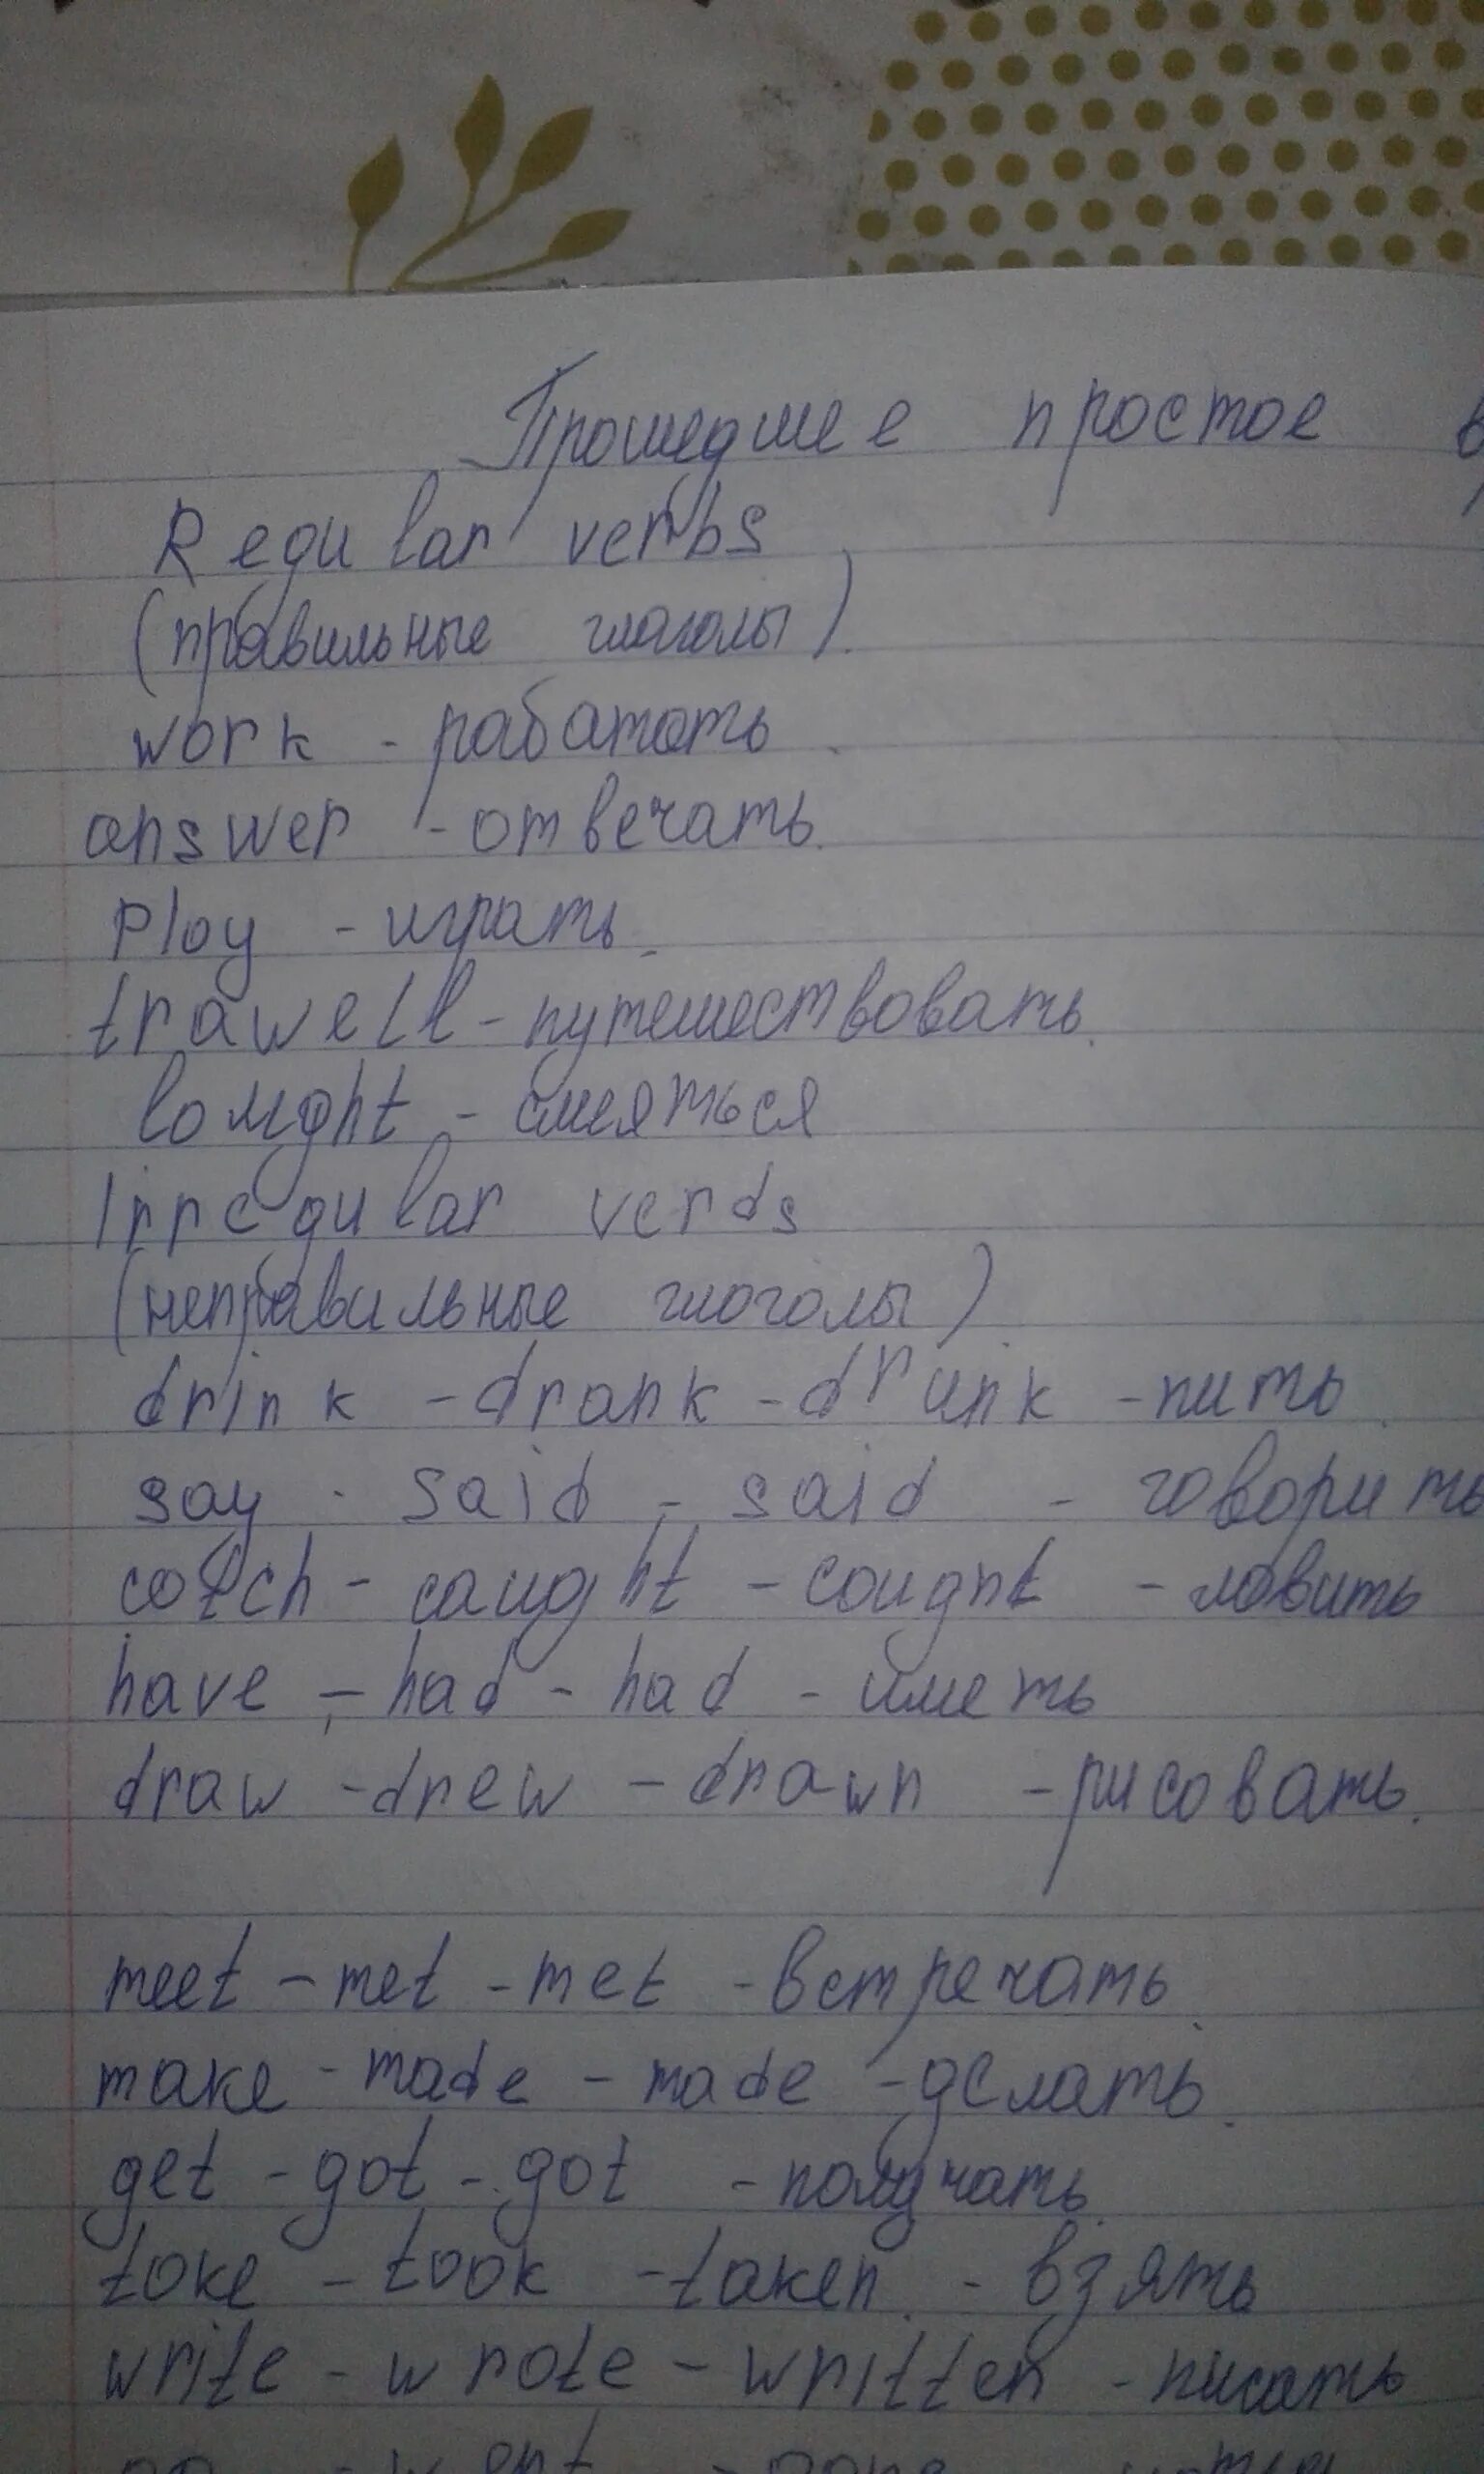 Прошедшее простое в
Regular verbs
(правильные глаголы).
work - работать
answer - отвечать.
Play - играть.
trawell - путешествовать.
laught - смеяться
Irregular verds
(неправильные глаголы).
drink - drank - drunk - пить.
say - said - said - говорить
catch - caught - caught - ловить
have - had - had - иметь
draw - drew - drawn - рисовать.
meet - met - met - встречать.
make - made - made - делать.
get - got - got - получать.
take - took - taken - взять
write - wrote - written - писать
go - went - gone